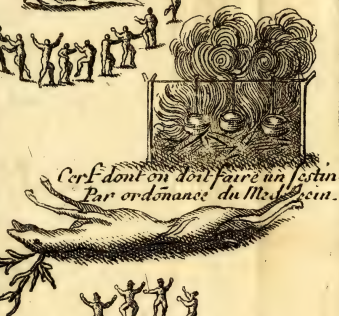 Cerf dont on doit faire un festin
Par ordõnance du Medecin.